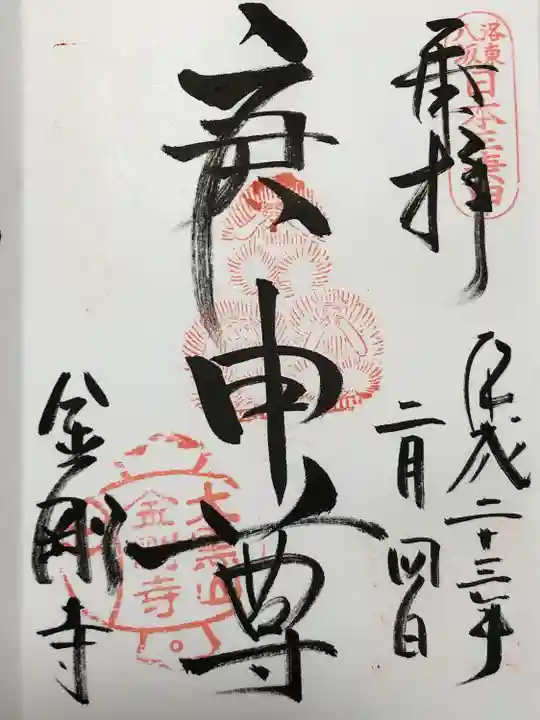 奉拝
洛東
八坂
日本三庚申
平成二十三年
二月四日
庚申尊
金剛寺
大黒山
金剛寺